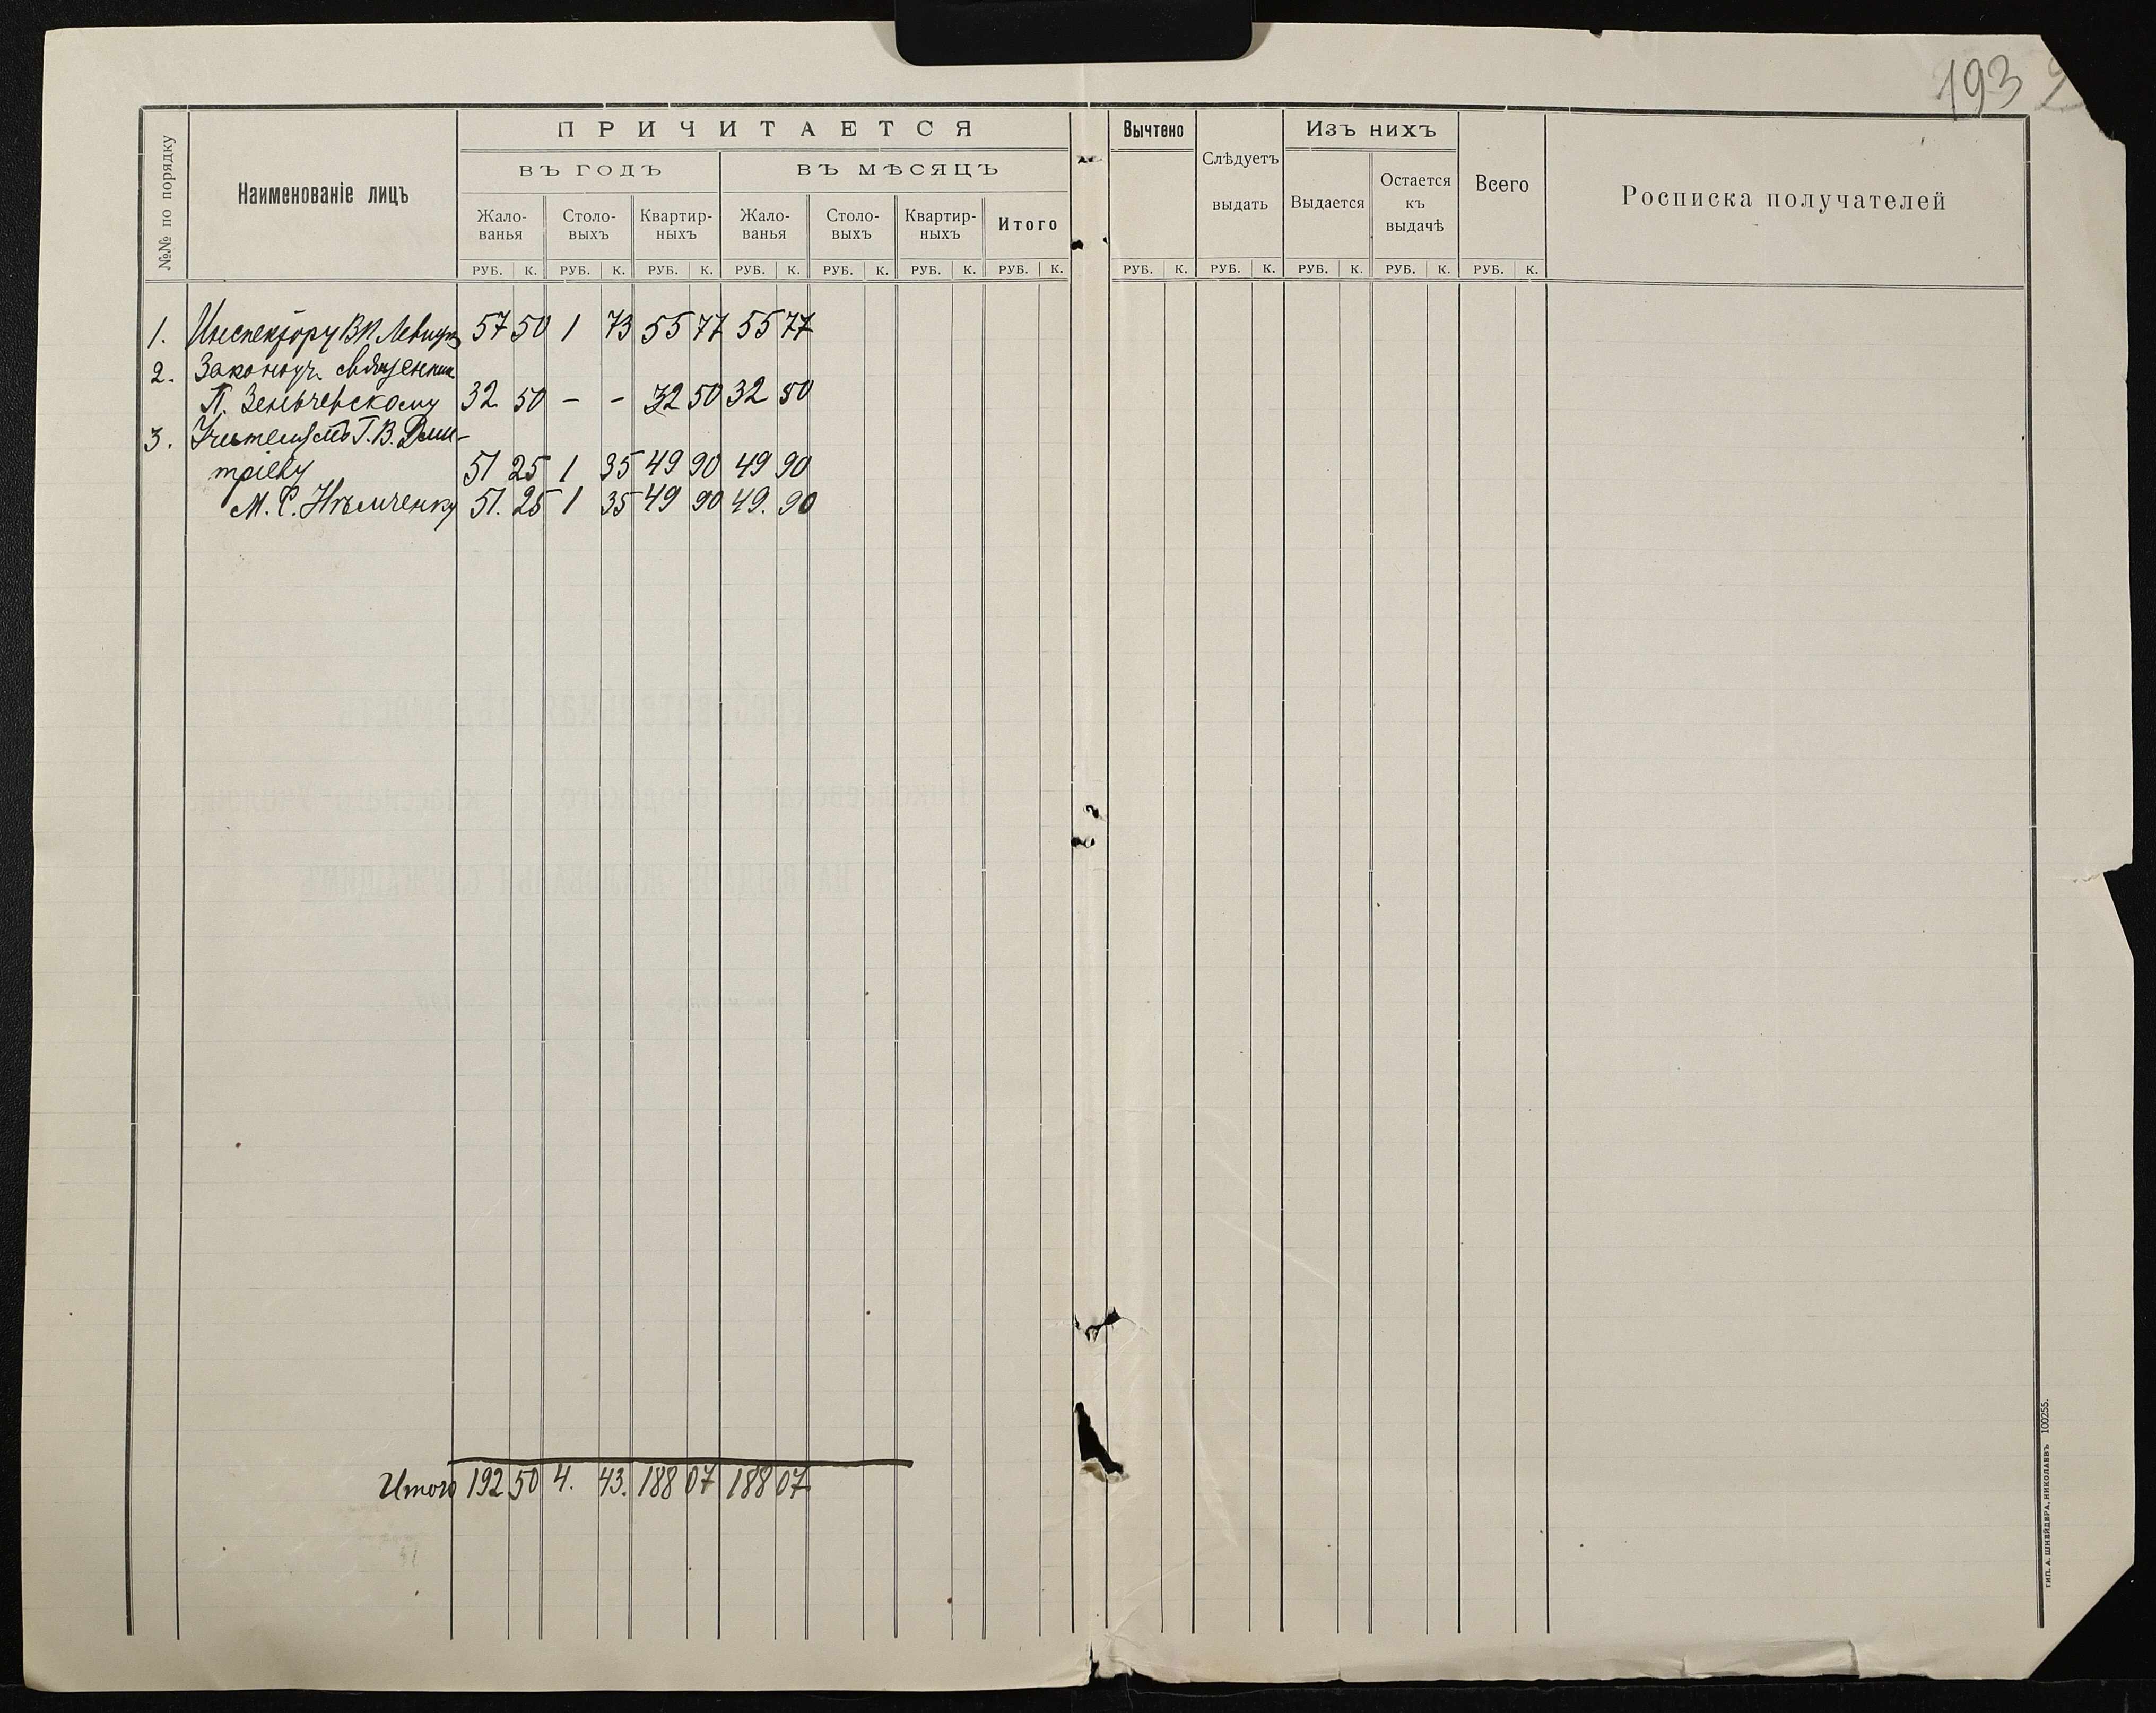 193
№№ по порядку
Наименованіе лицъ
ПРИЧИТАЕТСЯ
ВЪ ГОДЪ
ВЪ МѢСЯЦЪ
Жало-
ванья
Столо-
выхъ
Квартир-
ныхъ
Жало-
ванья
Столо-
выхъ
Квартир-
ныхъ
Итого
РУБ. К. РУБ. К. РУБ. К. РУБ. К. РУБ. К. РУБ. К. РУБ. К.
Вычтено
Слѣдуетъ
выдать
Изъ нихъ
Выдается
Остается
къ
выдачѣ
Всего
Росписка получателей
РУБ. К. РУБ. К. РУБ. К. РУБ. К. РУБ. К.
1. Инспектору В.П. 57 50 1 73 55 77 55 77
2. Законоуч. священник
П. Зеньчевскому 32 50 - - 32 50 32 50
3. Г. В. Дми-
тріеву 51 25 1 35 49 90 49 90
М. С. Нѣмченку 51. 25 1 35 49 90 49. 90
Итого 192 50 4. 43. 188 07 188 07
ТИП. А. ШНЕЙДЕРА, НИКОЛАЕВЪ 100255.